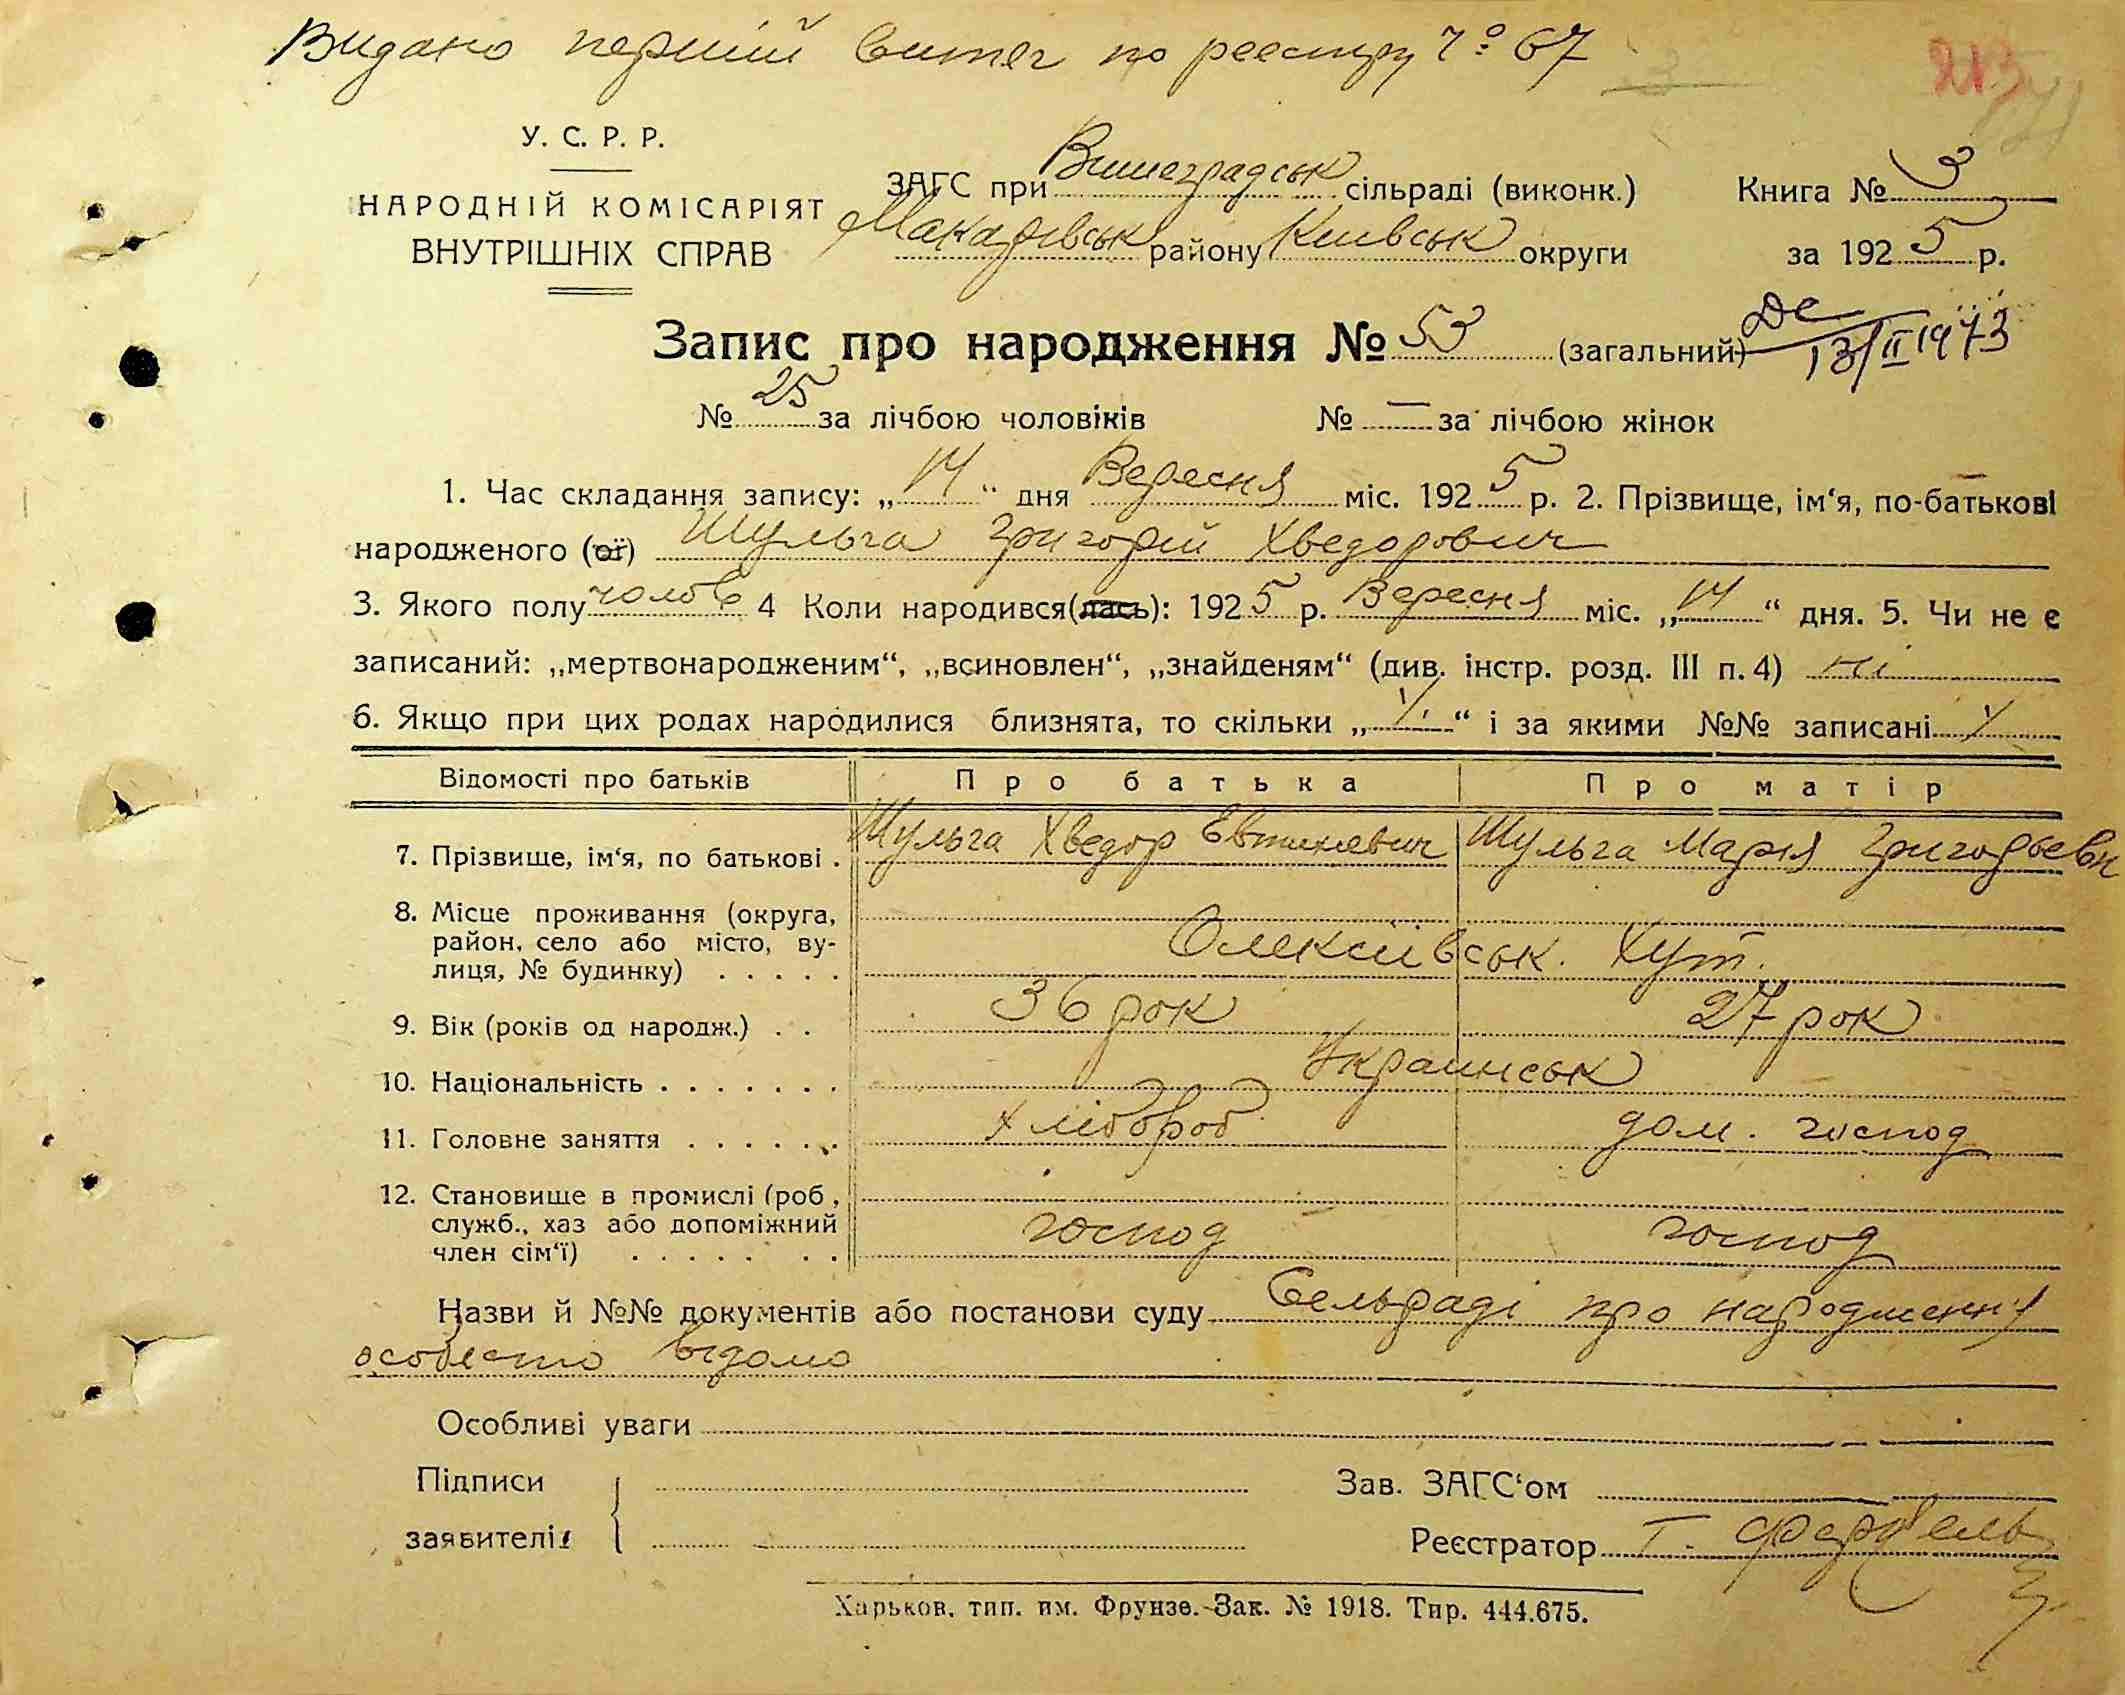 Видано перший витяг по реестру № 67
213
У. С. Р. Р.
НАРОДНІЙ КОМІСАРІЯТ
ВНУТРІШНІХ СПРАВ
ЗАГС при Виноградськ сільраді (виконк.) Книга № 3
Макарівськ району Київськ округи за 1925 р.
Запис про народження № 53 (загальний)
13/II 1973
№ 25 за лічбою чоловіків № — за лічбою жінок
1. Час складання запису: „14“ дня Вересня міс. 1925 р. 2. Прізвище, ім‘я, по-батькові
народженого (ої) Шульга Григорій Хведорович
3. Якого полу чолов 4 Коли народився(лась): 1925 р. Вересня міс. „14“ дня. 5. Чи не є
записаний: „мертвонародженим“, „всиновлен“, „знайденям“ (див. інстр. розд. III п. 4) ні
6. Якщо при цих родах народилися близнята, то скільки „ “ і за якими №№ записані
Відомості про батьків Про батька Про матір
7. Прізвище, ім‘я, по батькові . Шульга Хведор Евтихіевич Шульга Марія Григорьевн
8. Місце проживання (округа,
район, село або місто, ву-
лиця, № будинку) . . . . . Олексіівськ. Хут.
9. Вік (років од народж.) . . 36 рок 27 рок
10. Національність . . . . . . . Украинськ
11. Головне заняття . . . . . . хлібороб дом. господ
12. Становище в промислі (роб,
служб., хаз або допоміжний
член сім‘ї) . . . . . . . господ господ
Назви й №№ документів або постанови суду Сельраді про народження
особисто відомо
Особливі уваги
Підписи
заявителів
Зав. ЗАГС‘ом
Реєстратор Т.
Харьков, тип. им. Фрунзе.-Зак. № 1918. Тир. 444.675.